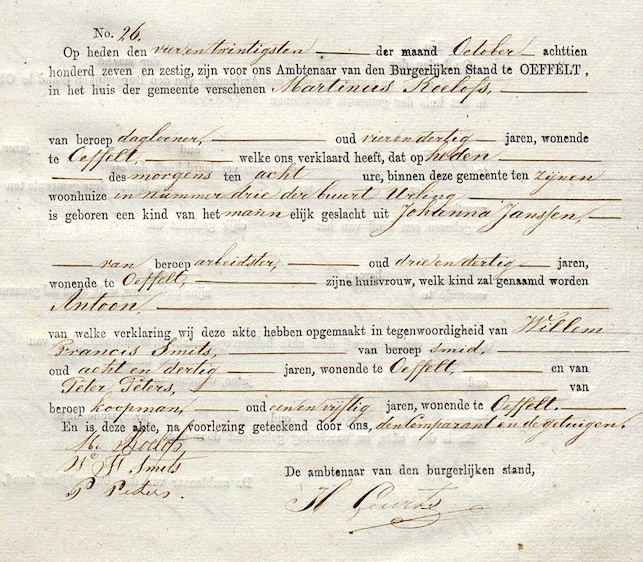 No. 26.
Op heden den vier en twintigsten der maand October achttien
honderd zeven en zestig, zijn voor ons Ambtenaar van den Burgerlijken Stand te OEFFELT,
in het huis der gemeente verschenen Martinus Roelofs,
van beroep daglooner, oud vier en dertig jaren, wonende
te Oeffelt, welke ons verklaard heeft, dat op heden
des morgens ten acht ure, binnen deze gemeente ten zijnen
woonhuize in nummer drie der buurt Urling
is geboren een kind van het mannelijk geslacht uit Johanna Janssen,
van beroep arbeidster, oud drie en dertig jaren,
wonende te Oeffelt, zijne huisvrouw, welk kind zal genaamd worden
Antoon,
van welke verklaring wij deze akte hebben opgemaakt in tegenwoordigheid van Willem
Francis Smits, van beroep smid,
oud acht en dertig jaren, wonende te Oeffelt, en van
Peter Peters, van
beroep koopman, oud een en vijftig jaren, wonende te Oeffelt.
En is deze akte, na voorlezing geteekend door ons, den comparant en de getuigen.
M. Roelofs
W. F. Smits
P Peters.
De ambtenaar van den burgerlijken stand,
H Geurts